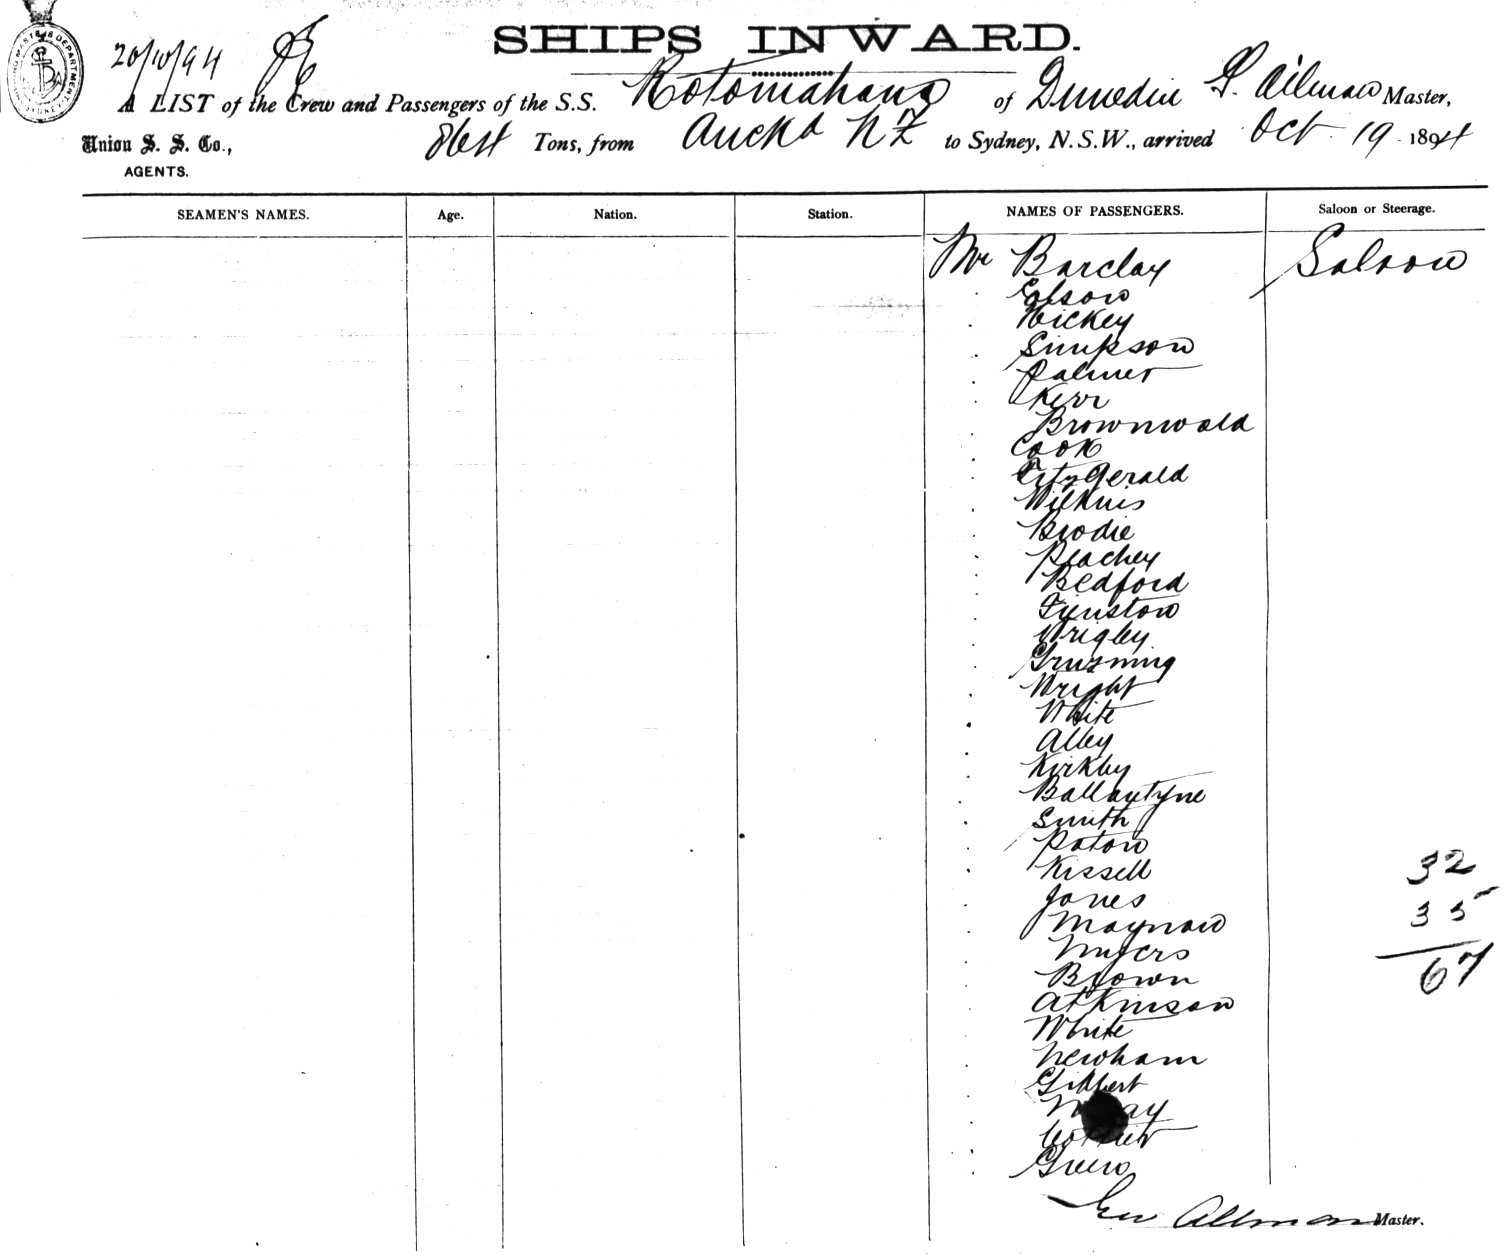 SHIPS INWARD.
20/10/94
A LIST of the Crew and Passengers of the S.S. Rotomahana of Dunedin G. Allman Master,
Union S. S. Co., 864 Tons, from Auckd NZ to Sydney, N.S.W., arrived Oct 19 1894
AGENTS.
SEAMEN'S NAMES. Age. Nation. Station. NAMES OF PASSENGERS. Saloon or Steerage.
Mr Barclay Saloon
Hickey
Simpson
Palmer
Kerr
Brownwold
Cook
FitzGerald
Wilkins
Brodie
Peachey
Bedford
Funston
Wrigley
Wright
White
Alley
Kirkby
Ballantyne
Smith
Paton
Kissell
32
Jones
35
Maynard
Myers
67
Brown
Atkinson
White
Newham
Gilbert
Green
Geo Allman Master.